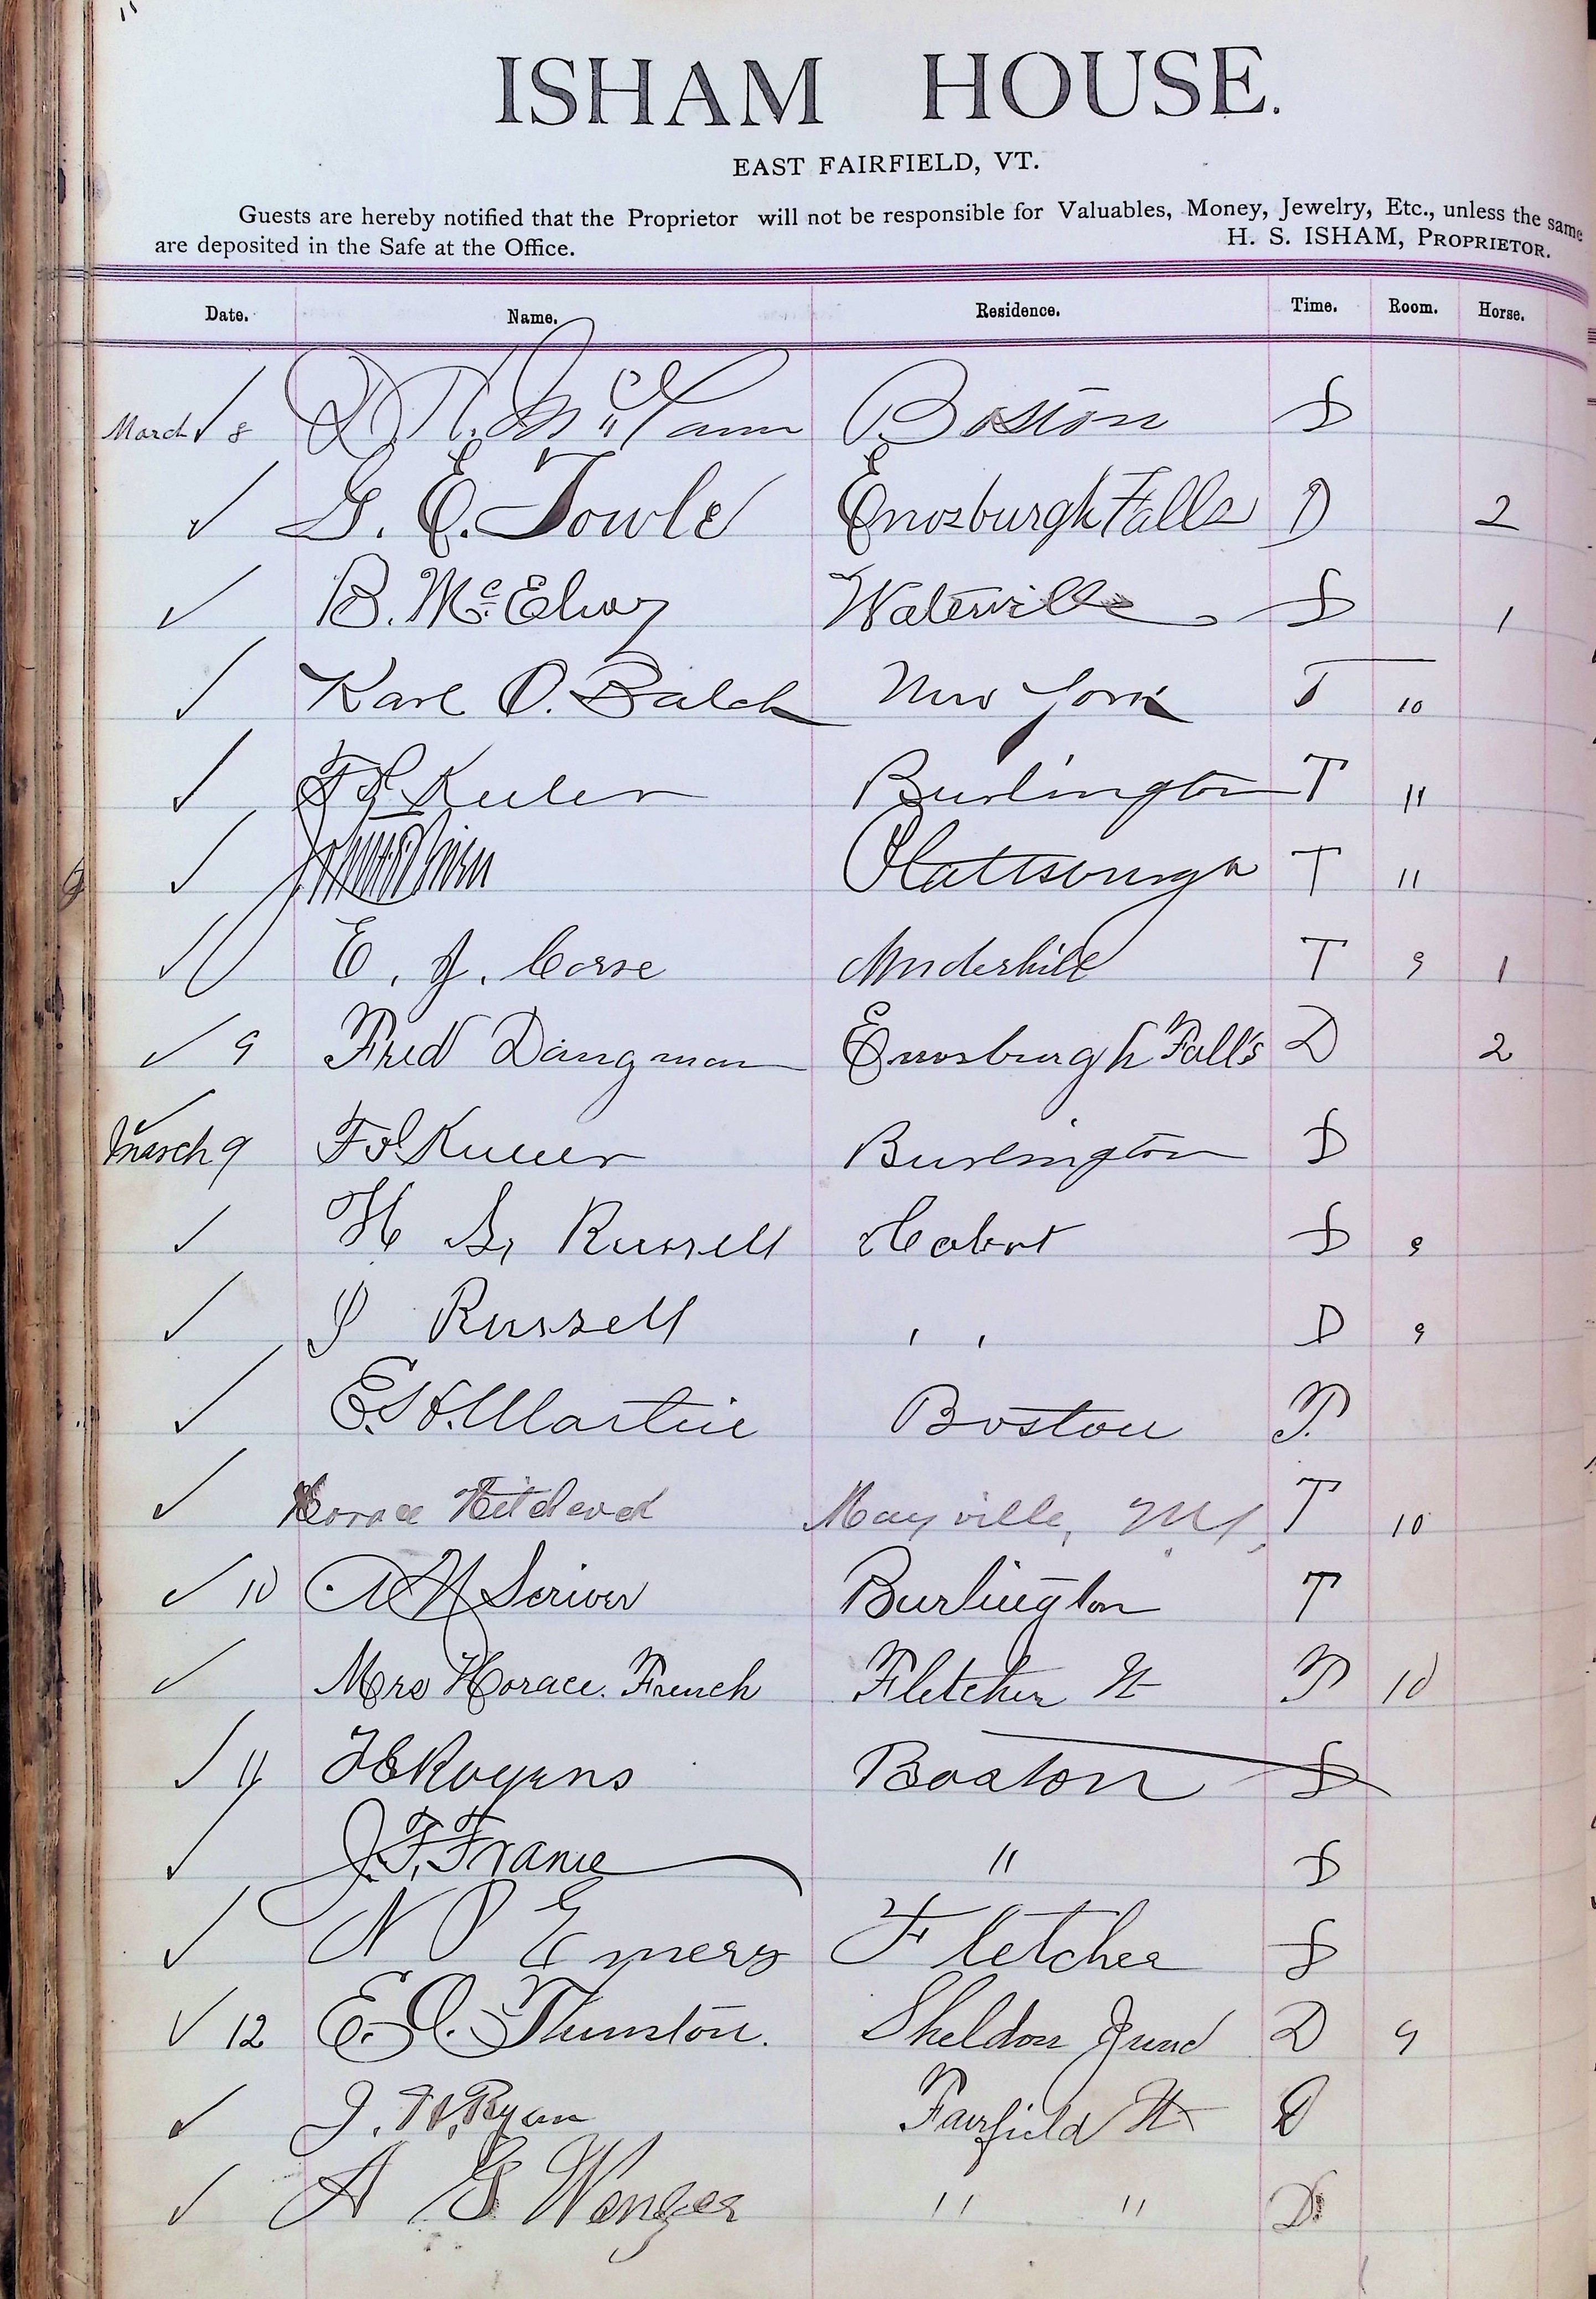 ISHAM HOUSE.
EAST FAIRFIELD, VT.
Guests are hereby notified that the Proprietor will not be responsible for Valuables, Money, Jewelry, Etc., unless the same
are deposited in the Safe at the Office. H. S. ISHAM, PROPRIETOR.
Date. Name. Residence. Time. Room. Horse.
March ✓ 8 Boston D
✓ G. E. Towle Enosburgh Falls D 2
✓ B. McElroy Waterville D 1
✓ Karl O. Balch New York T 10
✓ Burlington T 11
✓ Plattsburgh T 11
✓ E. J. Corse Underhill T 9 1
✓ 9 Fred Dangman Enosburgh Fall's D 2
✓ March 9 Burlington D
✓ H S, Russell Hobart D 9
✓ Russell " D 9
✓ E. H. Martin Boston T.
✓ Horace Mayville, T 10
✓ 10 Scriver Burlington T
✓ Mrs Horace. French Fletcher Vt T 10
✓ 11 Rogers Boston D
✓ J. F. " D
✓ N P Emery Fletcher D
✓ 12 E. O. Thurston. Sheldon Junc D 9
✓ J. H. Ryan Fairfield Vt D
✓ A G Wenzer " " D